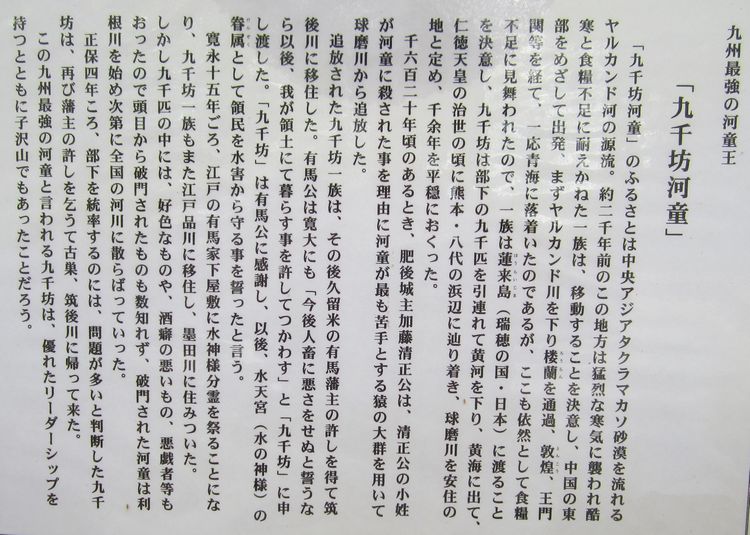 九州最強の河童王
「九千坊河童」
「九千坊河童」のふるさとは中央アジアタクラマカソ砂漠を流れる
ヤルカンド河の源流。約二千年前のこの地方は猛烈な寒気に襲われ酷
寒と食糧不足に耐えかねた一族は、移動することを決意し、中国の東
部をめざして出発、まずヤルカンド川を下り楼蘭を通過、敦煌、王門
関等を経て、一応青海に落着いたのであるが、ここも依然として食糧
不足に見舞われたので、一族は蓮来島（瑞穂の国・日本）に渡ること
を決意し、九千坊は部下の九千匹を引連れて黄河を下り、黄海に出て、
仁徳天皇の治世の頃に熊本・八代の浜辺に辿り着き、球磨川を安住の
地と定め、千余年を平穏におくった。
千六百二十年頃のあるとき、肥後城主加藤清正公は、清正公の小姓
が河童に殺された事を理由に河童が最も苦手とする猿の大群を用いて
球磨川から追放した。
追放された九千坊一族は、その後久留米の有馬藩主の許しを得て筑
後川に移住した。有馬公は寛大にも「今後人畜に悪さをせぬと誓うな
ら以後、我が領土にて暮らす事を許してつかわす」と「九千坊」に申
し渡した。「九千坊」は有馬公に感謝し、以後、水天宮（水の神様）の
眷属として領民を水害から守る事を誓ったと言う。
寛永十五年ごろ、江戸の有馬家下屋敷に水神様分霊を祭ることにな
り、九千坊一族もまた江戸品川に移住し、墨田川に住みついた。
しかし九千匹の中には、好色なものや、酒癖の悪いもの、悪戯者等も
おったので頭目から破門されたものも数知れず、破門された河童は利
根川を始め次第に全国の河川に散らばっていった。
正保四年ころ、部下を統率するのには、問題が多いと判断した九千
坊は、再び藩主の許しを乞うて古巣、筑後川に帰って来た。
この九州最強の河童と言われる九千坊は、優れたリーダーシップを
持つとともに子沢山でもあったことだろう。